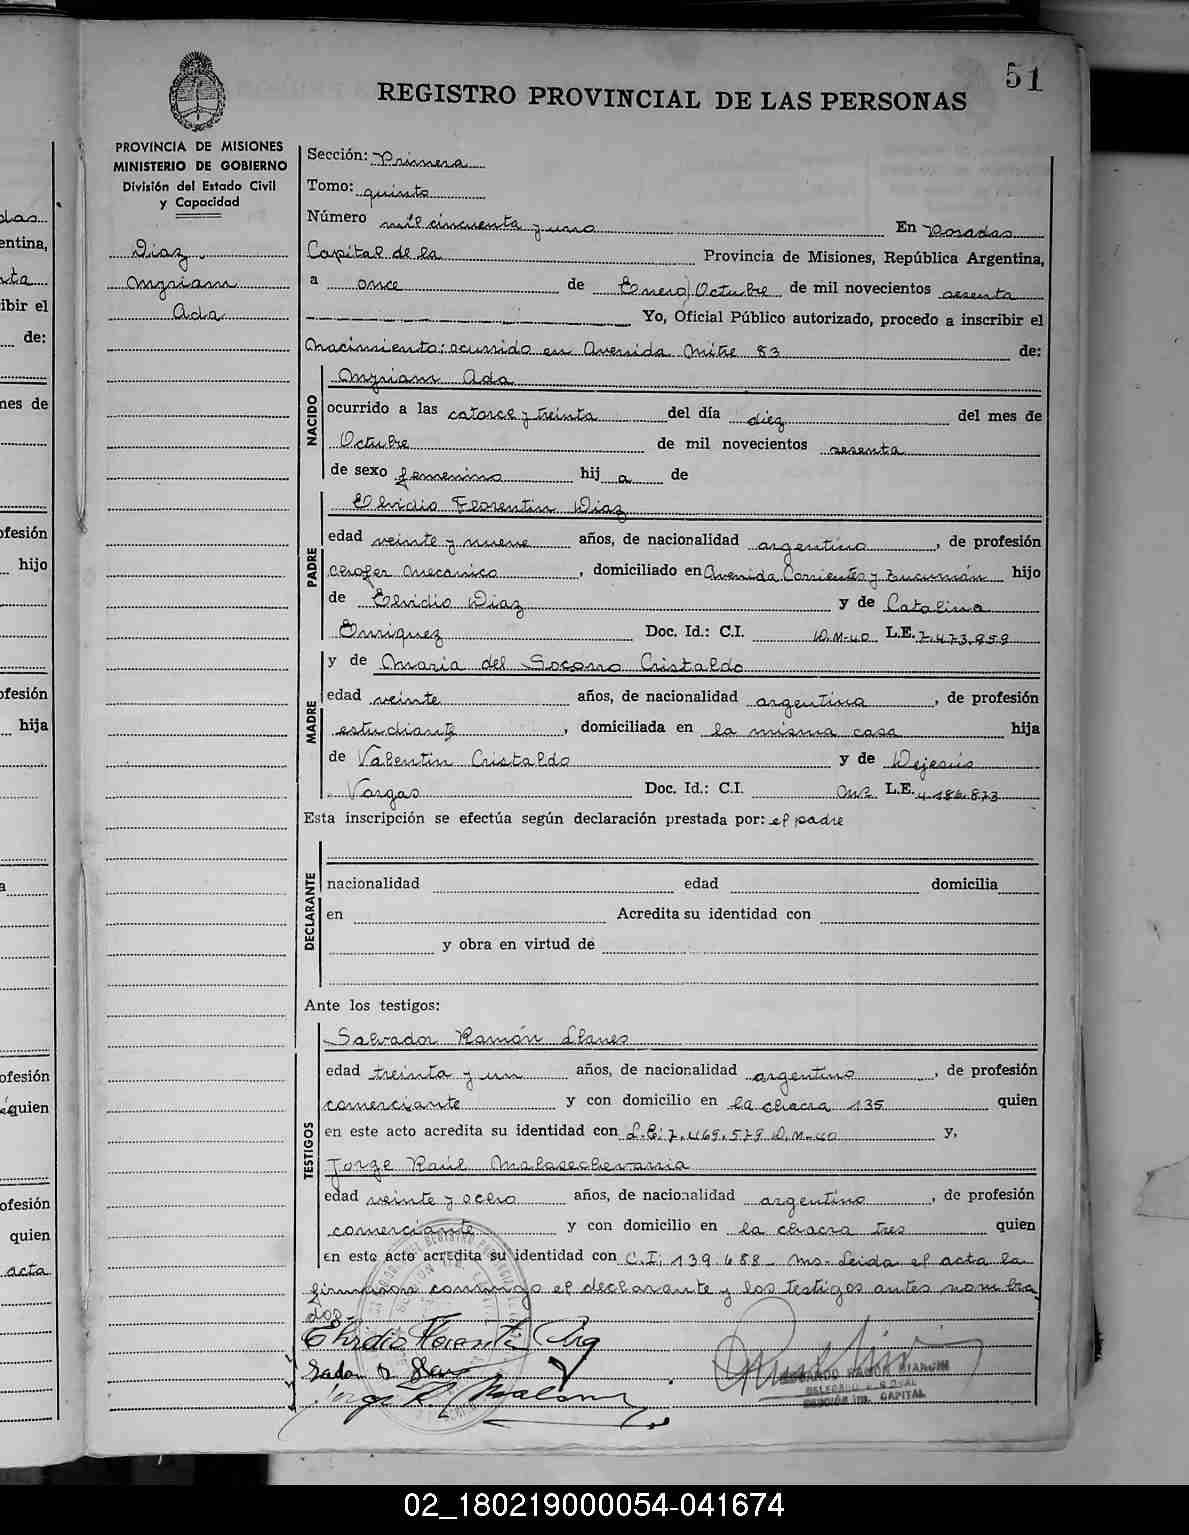 51
REGISTRO PROVINCIAL DE LAS PERSONAS
PROVINCIA DE MISIONES
MINISTERIO DE GOBIERNO
División del Estado Civil
y Capacidad
Diaz
Myriam
Ada
Sección: Primera
Tomo: quinto
Número mil cincuenta y uno En Posadas
Capital de la Provincia de Misiones, República Argentina,
a once de Enero/Octubre de mil novecientos sesenta
Yo, Oficial Público autorizado, procedo a inscribir el
Nacimiento: ocurrido en Avenida Mitre 83 de:
NACIDO
Myriam Ada
ocurrido a las catorce y treinta del día diez del mes de
Octubre de mil novecientos sesenta
de sexo femenino hij a de
PADRE
Elvidio Florentin Diaz
edad veinte y nueve años, de nacionalidad argentino, de profesión
chofer mecanico, domiciliado en Avenida Corrientes y Tucumán hijo
de Elvidio Diaz y de Catalina
Enriquez Doc. Id.: C.I. D.M-40 L.E. 7.473.959
MADRE
y de Maria del Socorro Cristaldo
edad veinte años, de nacionalidad argentina, de profesión
estudiante, domiciliada en la misma casa hija
de Valentin Cristaldo y de Dejesús
Vargas Doc. Id.: C.I. L.E. 4.186.873
Esta inscripción se efectúa según declaración prestada por: el padre
DECLARANTE
nacionalidad edad domicilia
en Acredita su identidad con
y obra en virtud de
Ante los testigos:
TESTIGOS
Salvador Ramón Llanes
edad treinta y un años, de nacionalidad argentino, de profesión
comerciante y con domicilio en la chacra 135 quien
en este acto acredita su identidad con L.E: 7.469.579 D.M-40 y,
Jorge Raúl Malasechevarria
edad veinte y ocho años, de nacionalidad argentino, de profesión
comerciante y con domicilio en la chacra tres quien
en este acto acredita su identidad con C.I: 139.488 - Ms. Leida el acta la
firmaron conmigo el declarante y los testigos antes nombra-
dos.
Elvidio Florentin Diaz
Jorge R.
SECCIÓN 1ra. CAPITAL
das
entina,
ibir el
de:
nes de
ofesión
hijo
ofesión
hija
a
ofesión
quien
ofesión
quien
acta
02_180219000054-041674